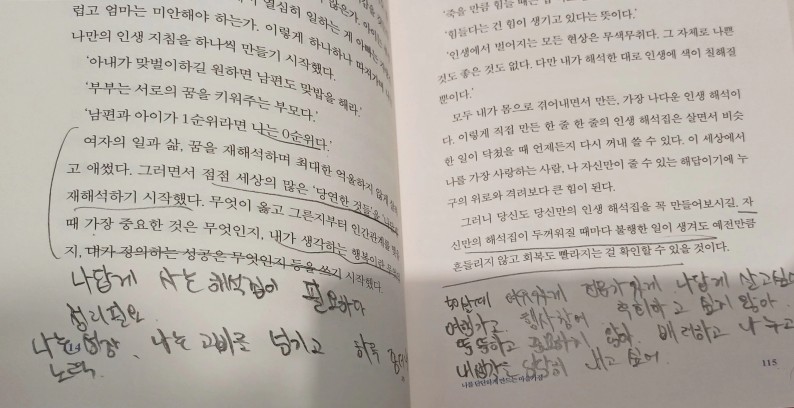 열심히 일하는 게 아빠는
럽고 엄마는 미안해야 하는가. 이렇게 하나하나 따져가며
나만의 인생 지침을 하나씩 만들기 시작했다.
‘아내가 맞벌이하길 원하면 남편도 맞밥을 해라.’
‘부부는 서로의 꿈을 키워주는 부모다.’
‘남편과 아이가 1순위라면 나는 0순위다.’
여자의 일과 삶, 꿈을 재해석하며 최대한 억울하지 않게
고 애썼다. 그러면서 점점 세상의 많은 ‘당연한 것들’을
재해석하기 시작했다. 무엇이 옳고 그른지부터 인간관계를
때 가장 중요한 것은 무엇인지, 내가 생각하는 행복이란
지, 내가 정의하는 성공은 무엇인지 등을 쓰기 시작했다
나답게 사는 해석집이 필요하다
정리필요.
나는 나는 고비를 넘기고 하루
노력.
‘죽을 만큼 힘들 때는
‘힘들다는 건 힘이 생기고 있다는 뜻이다.’
‘인생에서 벌어지는 모든 현상은 무색무취다. 그 자체로 나쁜
것도 좋은 것도 없다. 다만 내가 해석한 대로 인생에 색이 칠해질
뿐이다.’
모두 내가 몸으로 겪어내면서 만든, 가장 나다운 인생 해석이
다. 이렇게 직접 만든 한 줄 한 줄의 인생 해석집은 살면서 비슷
한 일이 닥쳤을 때 언제든지 다시 꺼내 쓸 수 있다. 이 세상에서
나를 가장 사랑하는 사람, 나 자신만이 줄 수 있는 해답이기에 누
구의 위로와 격려보다 큰 힘이 된다.
그러니 당신도 당신만의 인생 해석집을 꼭 만들어보시길. 자
신만의 해석집이 두꺼워질 때마다 불행한 일이 생겨도 예전만큼
흔들리지 않고 회복도 빨라지는 걸 확인할 수 있을 것이다.
나답게 살고싶다
후회하고 싶지 않아.
똑똑하고 않아. 배려하고 나누고
내고 싶어
115
나를 단단하게 만드는